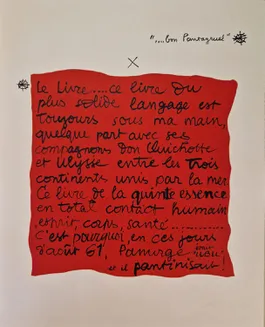 "....bon Pantagruel"
Le Livre.....ce livre du
plus solide langage est
toujours sous ma main,
quelque part avec ses
compagnons Don Quichotte
et Ulysse entre les trois
continents unis par la mer
Ce livre de la quinte essence
en total contact humain
esprit, corps, santé............
C'est pourquoi, en ces jours
d'août 61, Panurge
pantinisait